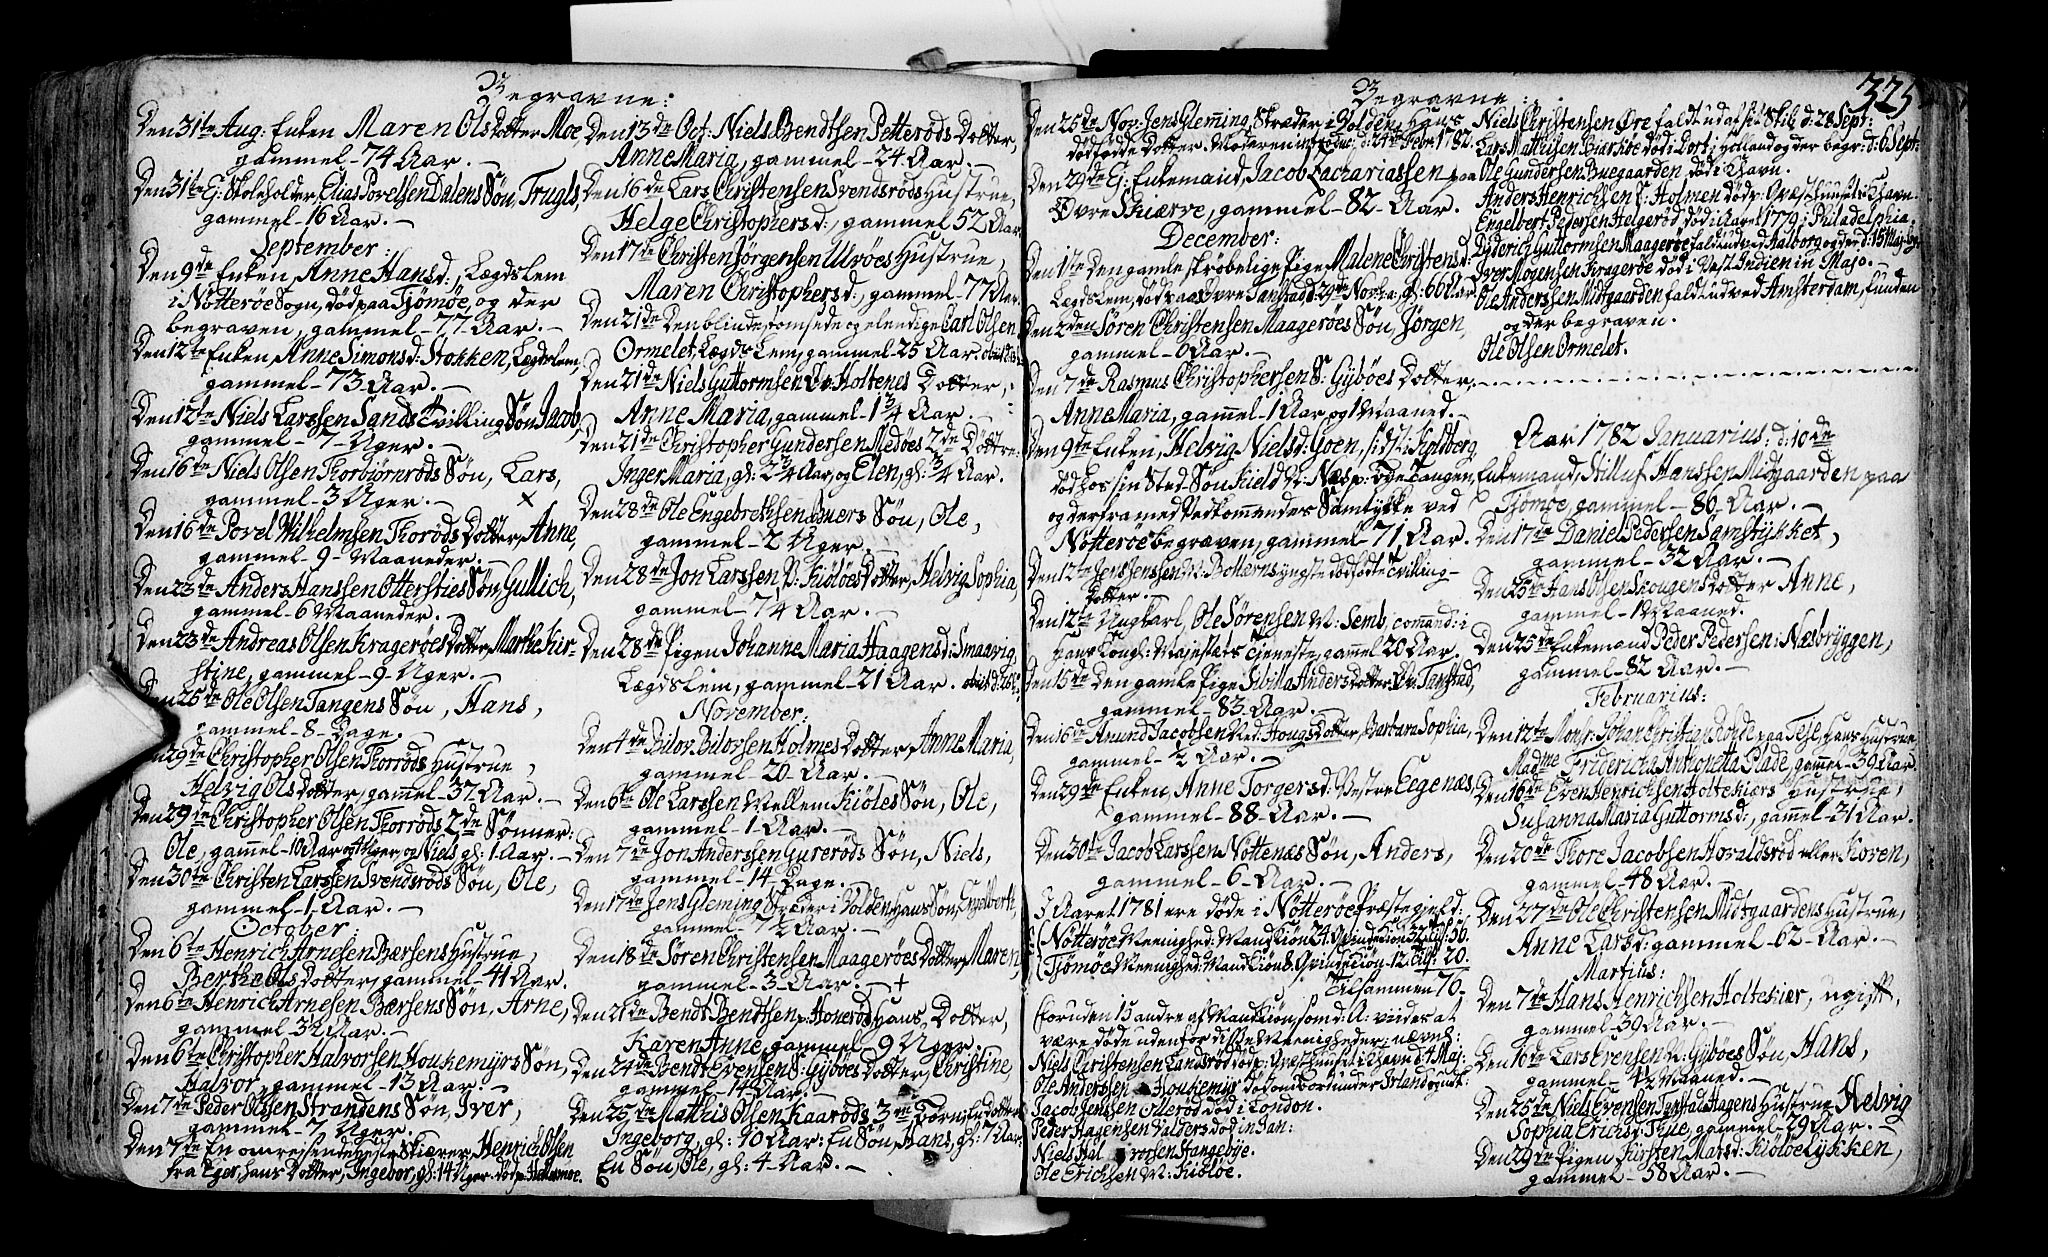 Begravne:
Den 31te Aug: Enken Maren Olsdotter Moe,
gammel - 74 Aar. -
Den 31te Ej: Skoleholder, Elias Povelsen Dalens Søn, Trugls,
gammel - 16 Aar. -
September:
Den 9de Enken, Anne Hansd:, Lægdslem
i Nøtterøe Sogn, død paa Tjømøe, og der
begraven, gammel - 77 Aar. -
Den 12te Enken, Anne Simonsd: Stokken, Lægdslem,
gammel - 73 Aar. -
Den 12te Niels Larssen Sands Tvilling Søn Jacob,
gammel - 7 - Uger. -
Den 16de Niels Olsen Thorbiørnrøds Søn, Lars,
gammel - 3 Uger. -
Den 16de Povel Wilhelmsen Thorøds Dotter, Anne,
gammel - 9 - Maaneder. -
Den 23de Anders Hanssen Ottersties Søn, Gullich,
gammel - 6 Maaneder. -
Den 23de Andreas Olsen Kragerøes Dotter, Marthe Kir-
stine, gammel - 9 - Uger. -
Den 25de Ole Olsen Tangens Søn, Hans,
gammel - 8 - Dage. -
Den 29de Christopher Olsen Thorrøds Hustrue,
Helvig Olsdotter, gammel - 37 - Aar. -
Den 29de Christopher Olsen Thorrøds 2de Sønner:
Ole, gammel - 10 Aar og Uger og Niels gl: 1 - Aar. -
Den 30te Christen Larssen Svendsrøds Søn, Ole,
gammel - 1 - Aar. -
October:
Den 6te Henrich Arnesen Bærsens Hustrue,
Berthe Olsdotter, gammel - 41 Aar.
Den 6te Henrich Arnesen Bærsens Søn, Arne,
gammel 3½ Aar. -
Den 6te Christopher Halvorsen Houkemyrs Søn,
Halvor, gammel - 13 Aar. -
Den 7de Peder Olssen Strandens Søn, Iver,
gammel - 7 Uger. -
Den 7de En omreisende Skiærer, Henrich Olsen
fra Eger, hans Dotter, Ingebor, gl: 14 Uger
Den 13de Oct: Niels Bendtsen Petterøds Dotter,
Anne Maria, gammel - 24 Aar. -
Den 16de Lars Christensen Svendsrøds Hustrue,
Helge Christophersd:, gammel 52 Aar
Den 17de Christen Jørgensen Ulvøes Hustrue,
Maren Christophersd:, gammel - 77 Aar.
Den 21de Den blinde og elendige Carl Olsen
Ormelet, Lægds Lem, gammel - 25 Aar.
Den 21de Niels Guttormsen Øv: Holtenes Dotter,
Anne Maria, gammel - 1¾ Aar. -
Den 21de Christopher Gundersen Medøes 2de Døttre:
Inger Maria, gl: 2¾ Aar, og Elen, gl: ¾ Aar.
Den 28de Ole Engebrethsen Buers Søn, Ole,
gammel - 2 Uger. -
Den 28de Jon Larssen N: Kiøløes Dotter, Helvig Sophia,
gammel - 7¼ Aar. -
Den 28de Pigen Johanne Maria Haagensd: Smaavig,
Lægdslem, gammel - 21 Aar.
November:
Den 4de Bilov Bilovsen Holmes Dotter, Anne Maria,
gammel - 20 - Aar. -
Den 6te Ole Larssen Mellem Kiøles Søn, Ole,
gammel - 1 - Aar. -
Den 7de Jon Anderssen Gurerøds Søn, Niels,
gammel - 14 - Dage. -
Den 17de Jens Gleming Skræder i Bolden, Hans Søn, Engelberth,
gammel - 7½ Aar. -
Den 18de Søren Christensen Maagerøes Dotter, Maren,
gammel - 3 - Aar. -
Den 21de Bendt Bendtsen p: Honerød, hans Dotter,
Karen Anne, gammel - 9 Uger. -
Den 24de Bendt Evensen S: Gybøes Dotter, Christine,
gammel - 14 - Aar. -
Den 25de Mathis Olsen Kaarøds 3de Børn, En dotter
Ingeborg, gl: 10 Aar: En Søn, Hans, gl: 7 Aar
En Søn, Ole, gl: 4 - Aar. -
Begravne:
325
Den 25de Nov: Jens Gleming, Skræder i Bolden, Hans
dødfødte Dotter. Moderen introduc: d: Febr: 1782.
Den 29de Ej: Enkemand, Jacob Zachariassen paa
Øvre Skiærve, gammel - 82 - Aar.
December:
Den 1ste Den gamle skrøbelige Pige, Malene Christensd:
Lægdslem, død paa Øvre Tanstad d: 29de Novbr: gl: 60 Aar
Den 2den Søren Christensen Maagerøes Søn, Jørgen,
gammel - 0 Aar. -
Den 7de Rasmus Christophersen S: Gybøes Dotter,
Anne Maria, gammel - 1 Aar og 1 Maaned. -
Den 9de Enken, Helvig Nielsd: Goen,
død hos sin Sted-Søn Kield
og derfra med Vedkommendes Samtykke ved
Nøtterøe begraven, gammel - 71 Aar.
Den 12te Jens Jenssen N: Bottærns yngste dødfødte Tvilling-
Dotter. -
Den 12te Ungkarl, Ole Sørensen N: Semb, comand: i
hans Kongl: Majestæts Tjeneste, gammel 20 Aar.
Den 15de Den gamle Pige Sibilla Andersdotter Øv: Tanstad,
gammel - 83 - Aar. -
Den 16de Amund Jacobsen Ned: Hougs Dotter, Barbara Sophia,
gammel - ½ Aar. -
Den 29de Enken, Anne Torgersd: Vestre Eegenæs,
gammel - 88 - Aar. -
Den 30te Jacob Larssen Nøttenæs Søn, Anders,
gammel - 6 - Aar. -
I Aaret 1781 ere døde i Nøtterøe Præstegield:
Nøtterøe Meenighed: Mandkiøn 24. Qvindekiøn 32. tils: 56.
Tjømøe Meenighed: Mandkiøn 8. Qvindekiøn - 12. tils: 20.
Tilsammen 76.
foruden 15 andre af Mandkiøn, som d: A: viides at
være døde udenfor disse Meenigheder, nævnl:
Niels Christensen Landsrød død p: Qvæsthuuset i Khavn d: 4 Maj:
Ole Anderssen Houkemyr død ombord under Irland
Jacob Jenssen Ollerød død i London.
Peder Hagensen Valders død in Jan:
Niels Halvorssen Hangebøe.
Ole Erichsen N: Kiøløe.
Niels Christensen Øre faldt ud af sit Skib d: 28 Sept:
Lars Mathisen Biærkøe død i Dort i Holland og der begr: d: 6 Sept:
Ole Gundersen Buegaarden, død i Khavn.
Anders Henrichsen p: Holmen død p: Qvæsthuuset i Khavn
Engelbert Pedersen Helgerød død i Aaret 1779 i Philadelphia.
Dyderich Guttormsen Maagerøe falden ud ved Aalborg og der d: 15 Maj begr:
Iver Mogensen Kragerøe død i Vest Indien in Majo. -
Ole Anderssen Midtgaarden fald ud ved Amsterdam, funden
og der begraven.
Ole Olsen Ormelet.
Aar 1782 Januarius: d: 10de
Enkemand, Hilluf Hanssen Midtgaarden paa
Tjømøe, gammel - 80 - Aar. -
Den 17de Daniel Pedersen Samstykket,
gammel - 32 Aar. -
Den 25de Hans Olsen Skougens Dotter Anne,
gammel - 1 Maaned.
Den 25de Enkemand Peder Pedersen: Næsbryggen,
gammel - 82 Aar. -
Februarius:
Den 12te Monsr: Johan Christian Rohde paa Fejl, hans Hustrue
Madme Fridericia Antoinetta Plade, gammel - 39 Aar.
Den 16de Even Henrichsen Holtekiærs Hustrue,
Susanna Maria Guttormsd:, gammel - 31 Aar.
Den 20de Thore Jacobsen Horaldsrød eller Koren,
gammel - 48 Aar. -
Den 27de Ole Christensen Midtgaardens Hustrue,
Anne Larsd: gammel - 62 - Aar. -
Martius:
Den 7de Hans Henrichsen Holtekiær, ugift,
gammel - 39 Aar. -
Den 10de Lars Evensen N: Gybøes Søn, Hans,
gammel - 4½ Maaned. -
Den 25de Niels Evensen Tanstad Hagens Hustrue Helvig
Sophia Erichsd: Thue, gammel - 29 Aar. -
Den 29de Pigen Kirsten Marsd: Kiøløelykken,
gammel - 58 Aar. -